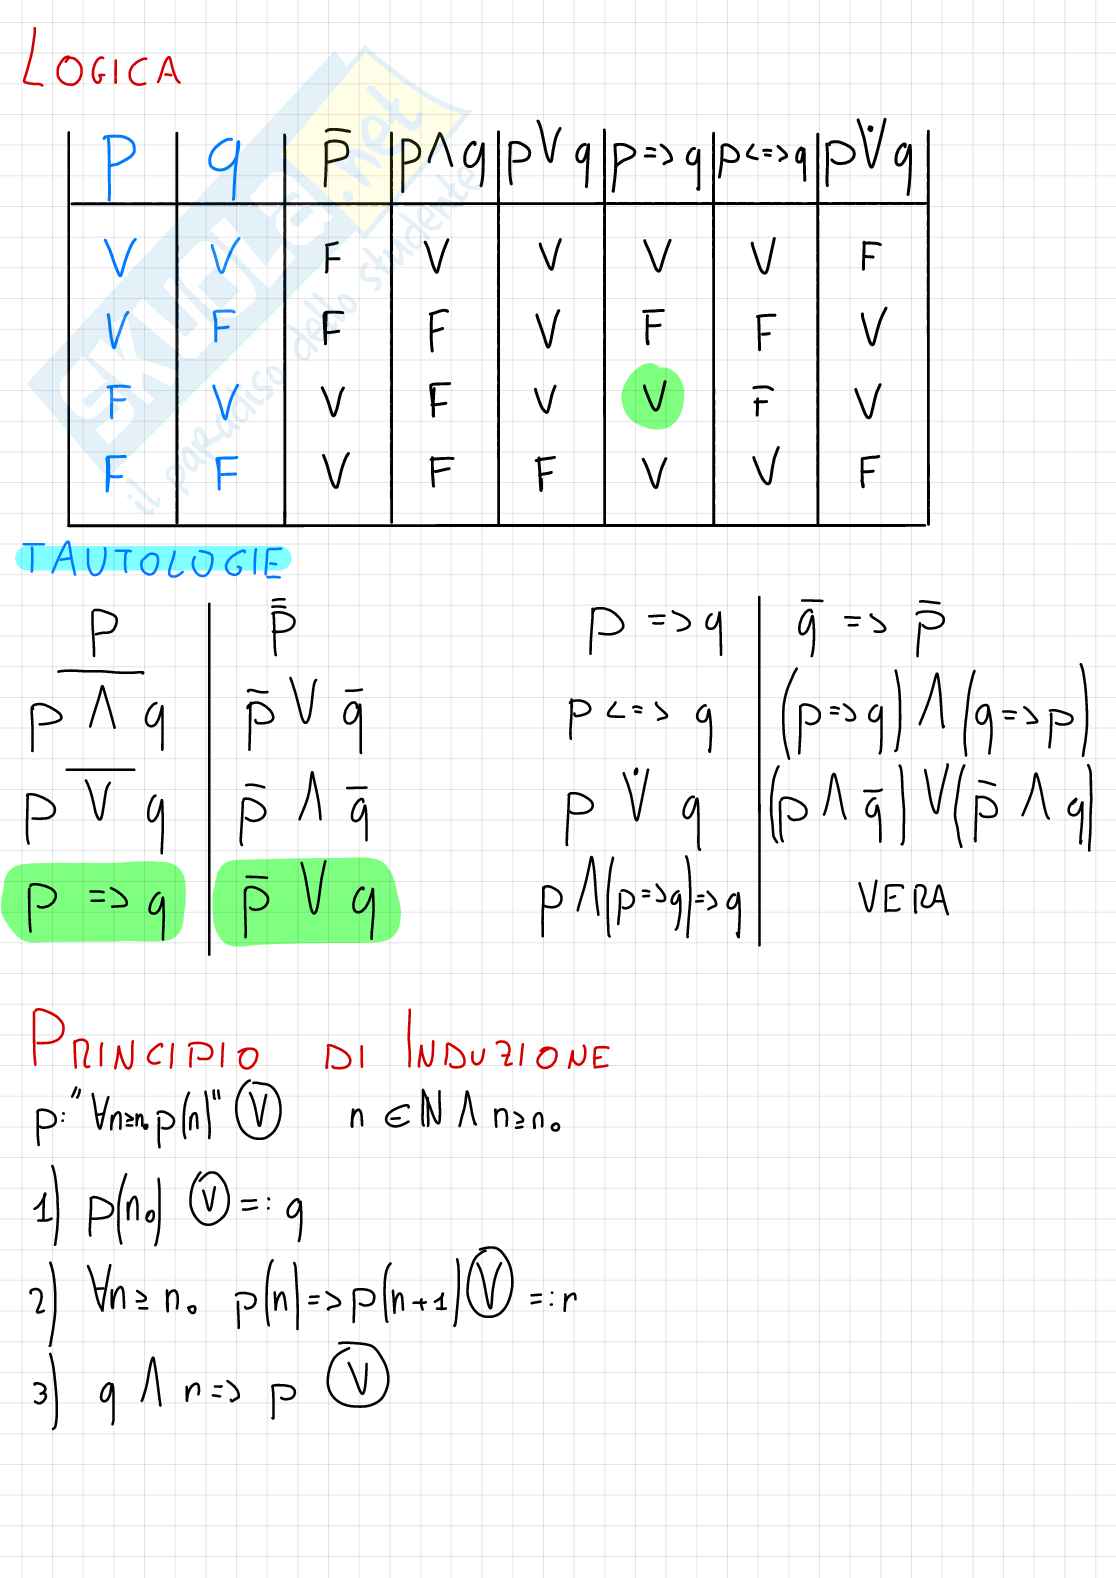 LOGICA
p q p̅ p∧q p∨q p=>q p<=>q p∨̇q
V V F V V V V F
V F F F V F F V
F V V F V V F V
F F V F F V V F
TAUTOLOGIE
p p̿ p => q q̅ => p̅
p̅ ∧̅ q̅ p̅ ∨ q̅ p <=> q (p=>q) ∧ (q=>p)
p̅ ∨̅ q̅ p̅ ∧ q̅ p ∨̇ q (p ∧ q̅) ∨ (p̅ ∧ q)
p => q p̅ ∨ q p∧(p=>q)=>q VERA
PRINCIPIO DI INDUZIONE
p: "∀n≥n₀ p(n)" Ⓥ n ∈ ℕ ∧ n≥n₀
1) p(n₀) Ⓥ =: q
2) ∀n ≥ n₀ p(n) => p(n+1) Ⓥ =: r
3) q ∧ r => p Ⓥ
SKUOLA.net
il paradiso dello studente